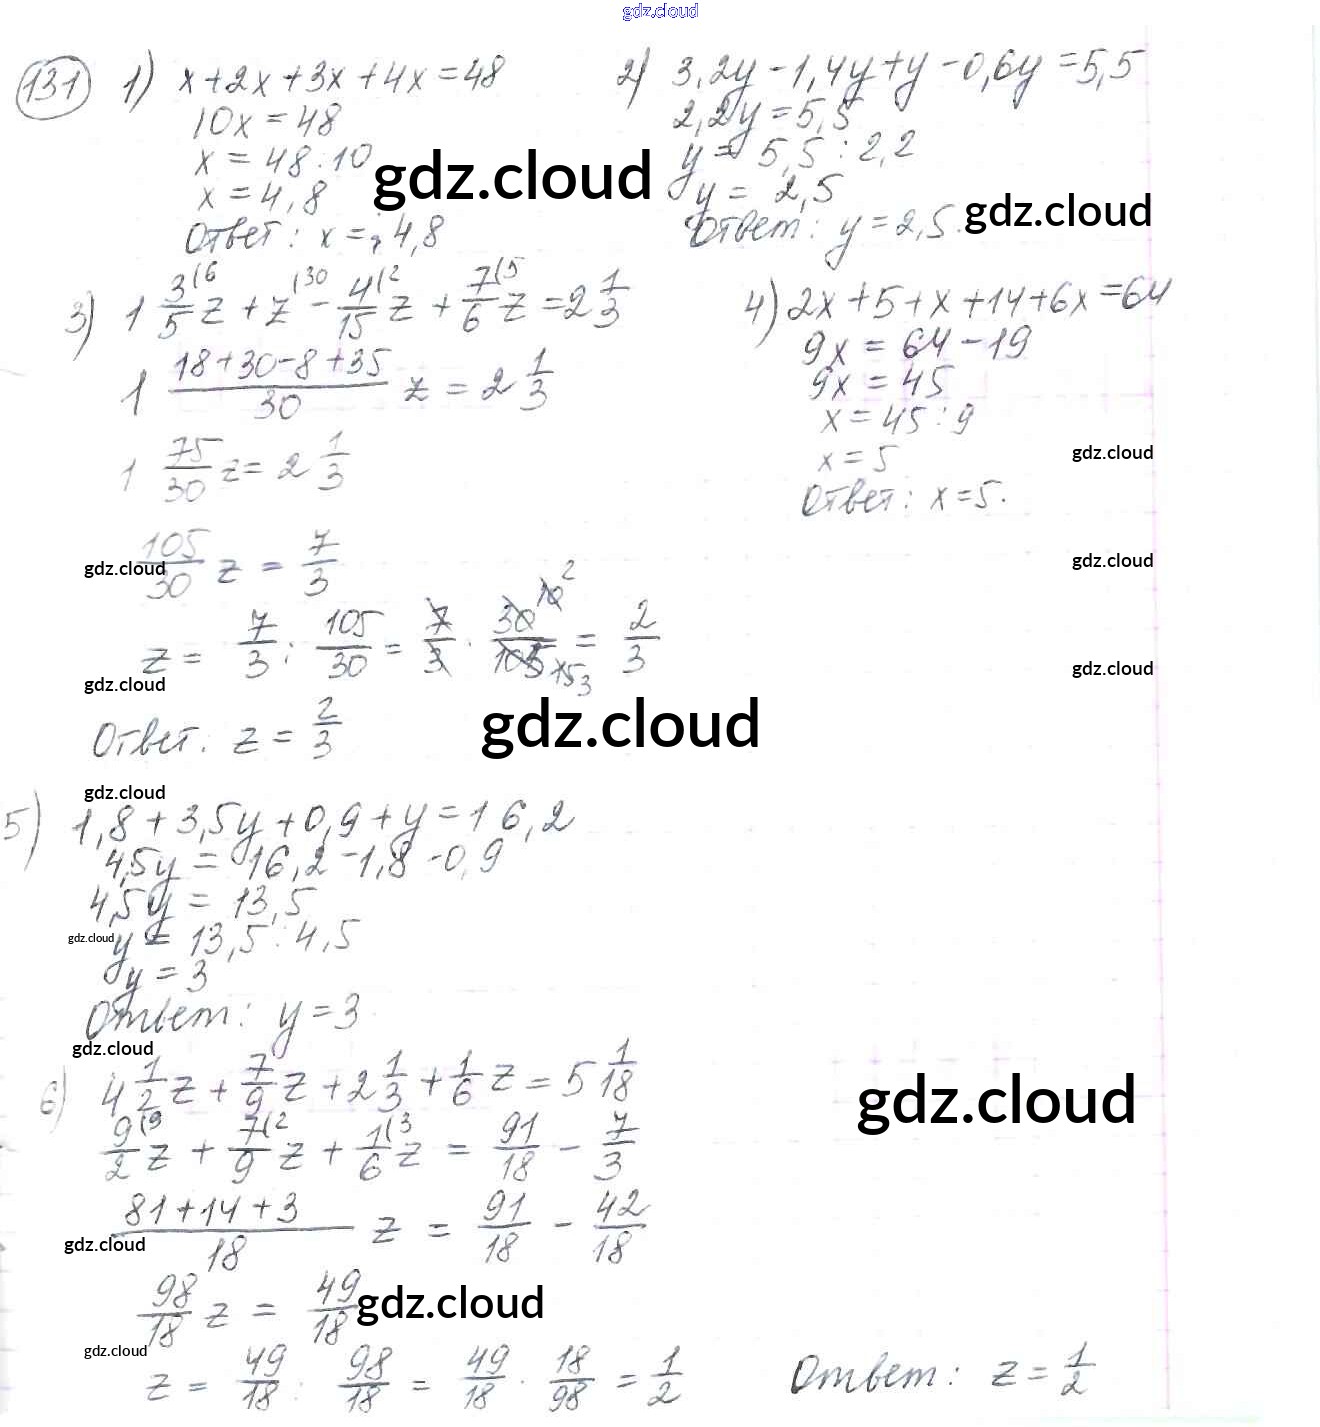 gdz.cloud
131 1) x+2x+3x+4x=48
10x=48
x=48:10
x=4,8
Ответ: x=4,8
2) 3,2y-1,4y+y-0,6y=5,5
2,2y=5,5
y=5,5:2,2
y=2,5
Ответ: y=2,5.
gdz.cloud
gdz.cloud
3) 1 3/5(6 z + z(30 - 4/15(2 z + 7/6(5 z = 2 1/3
1 (18+30-8+35)/30 z = 2 1/3
1 75/30 z = 2 1/3
105/30 z = 7/3
z = 7/3 : 105/30 = 7/3 · 30/105 10 2 15 3 = 2/3
Ответ: z = 2/3
4) 2x+5+x+14+6x=64
9x=64-19
9x=45
x=45:9
x=5
Ответ: x=5.
gdz.cloud
gdz.cloud
gdz.cloud
gdz.cloud
gdz.cloud
gdz.cloud
gdz.cloud
5) 1,8+3,5y+0,9+y=16,2
4,5y=16,2-1,8-0,9
4,5y=13,5
gdz.cloud
y=13,5:4,5
y=3
Ответ: y=3
gdz.cloud
6) 4 1/2 z + 7/9 z + 2 1/3 + 1/6 z = 5 1/18
gdz.cloud
9/2(9 z + 7/9(2 z + 1/6(3 z = 91/18 - 7/3
(81+14+3)/18 z = 91/18 - 42/18
gdz.cloud
98/18 z = 49/18
gdz.cloud
gdz.cloud
z = 49/18 : 98/18 = 49/18 · 18/98 = 1/2
Ответ: z = 1/2